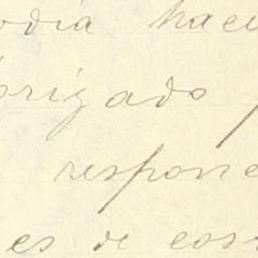 odia hacer
brigado p
respone
es de cos